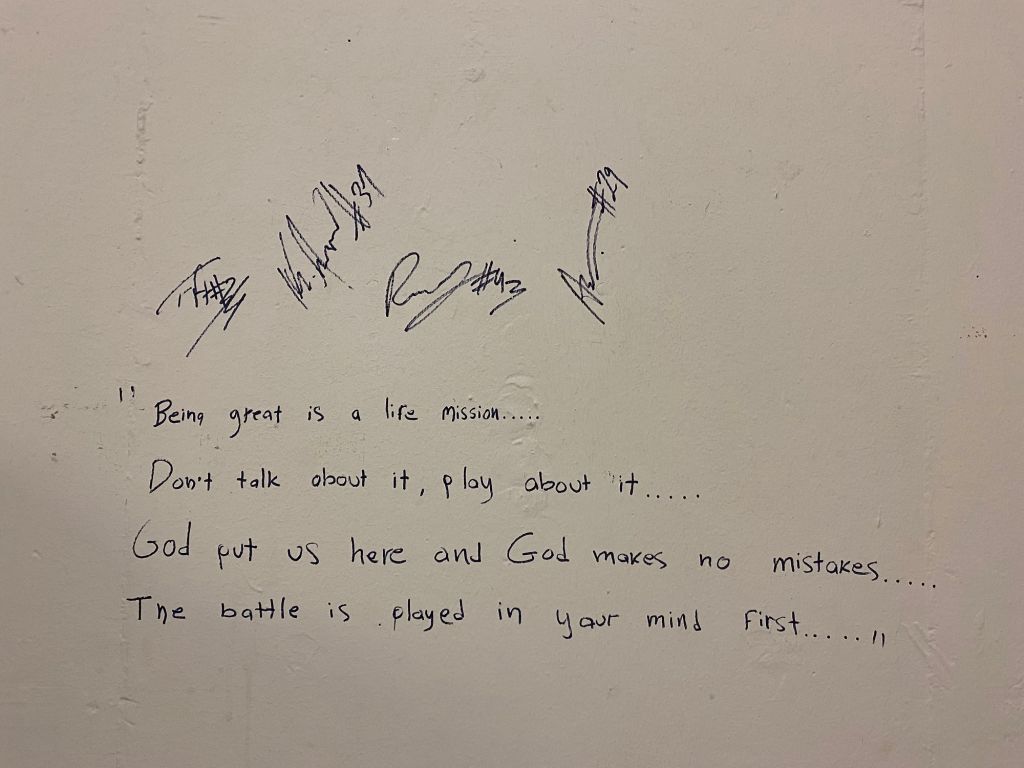 #31
#43
#29
"Being great is a life mission.....
Don't talk about it, play about it.....
God put us here and God makes no mistakes.....
The battle is played in your mind first....."